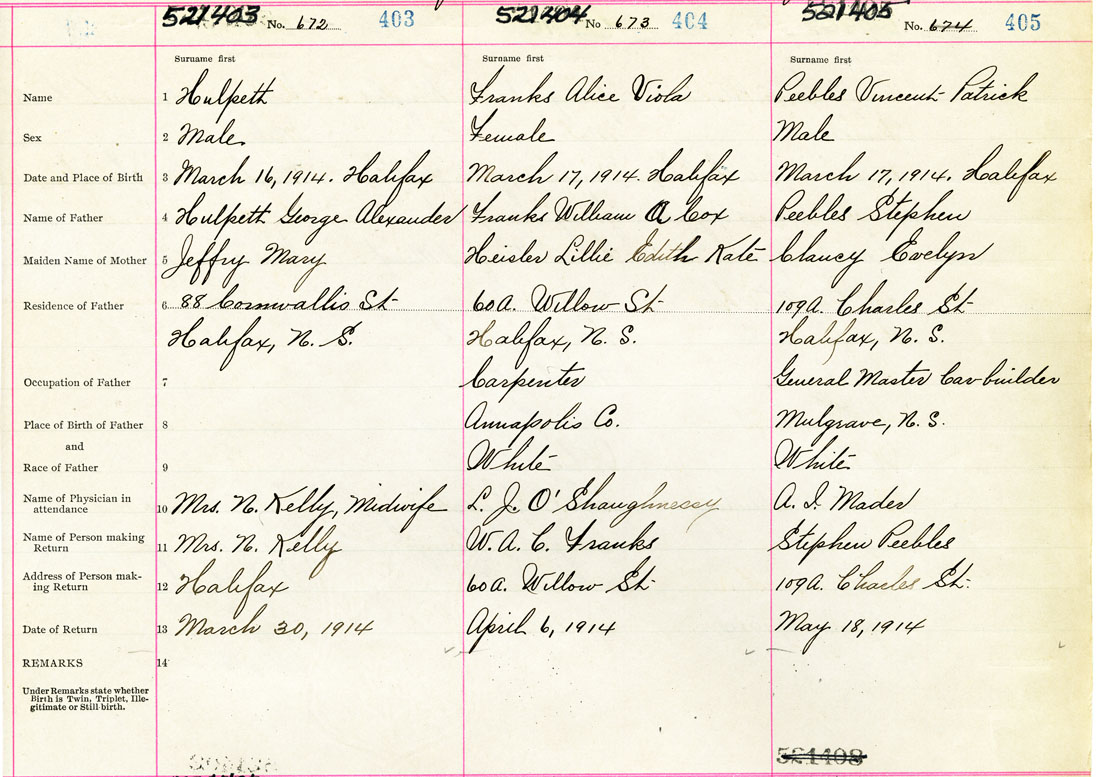 521403 No. 672 403
521404 No 673 404
521405 No. 674 405
Surname first Surname first Surname first
Name 1 Hulpeth Franks Alice Viola Peebles Vincent Patrick
Sex 2 Male Female Male
Date and Place of Birth 3 March 16, 1914. Halifax March 17, 1914. Halifax March 17, 1914. Halifax
Name of Father 4 Hulpeth George Alexander Franks William A Cox Peebles Stephen
Maiden Name of Mother 5 Jeffry Mary Heisler Lillie Edith Kate Clancy Evelyn
Residence of Father 6 88 Cornwallis St 60A. Willow St 109A. Charles St
Halifax, N. S. Halifax, N. S. Halifax, N. S.
Occupation of Father 7 Carpenter General Master Car-builder
Place of Birth of Father 8 Annapolis Co. Mulgrave, N. S.
and
Race of Father 9 White White
Name of Physician in
attendance 10 Mrs. N. Kelly, Midwife L. J. O'Shaughnessy A. I. Mader
Name of Person making
Return 11 Mrs. N. Kelly W. A. C. Franks Stephen Peebles
Address of Person mak-
ing Return 12 Halifax 60A. Willow St 109A. Charles St.
Date of Return 13 March 30, 1914 April 6, 1914 May 18, 1914
REMARKS 14
Under Remarks state whether
Birth is Twin, Triplet, Ille-
gitimate or Still-birth.
521408